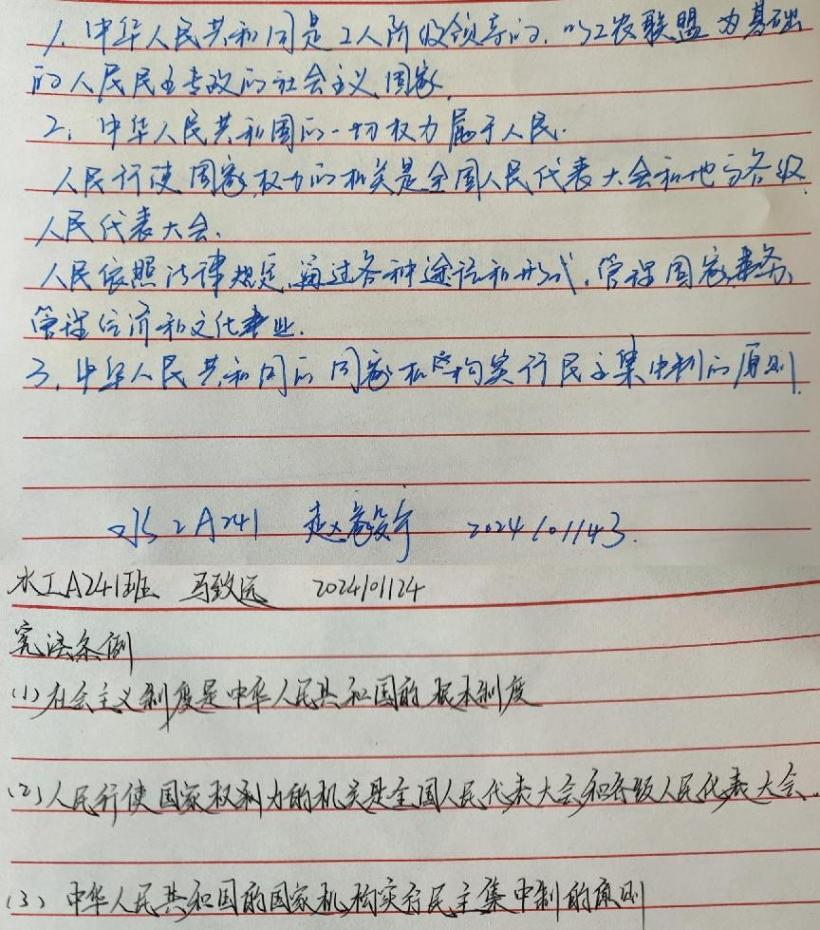 1. 中华人民共和国是工人阶级领导的,以工农联盟为基础
的人民民主专政的社会主义国家
2. 中华人民共和国的一切权力属于人民.
人民行使国家权力的机关是全国人民代表大会和地方各级
人民代表大会.
人民依照法律规定,通过各种途径和形式,管理国家事务,
管理经济和文化事业.
3. 中华人民共和国的国家机构实行民主集中制的原则.
水工A241 赵毅宇 2024101143.
水工A241班 马致远 2024101124
宪法条例
(1)社会主义制度是中华人民共和国的根本制度
(2)人民行使国家权利力的机关是全国人民代表大会和各级人民代表大会.
(3)中华人民共和国的国家机构实行民主集中制的原则